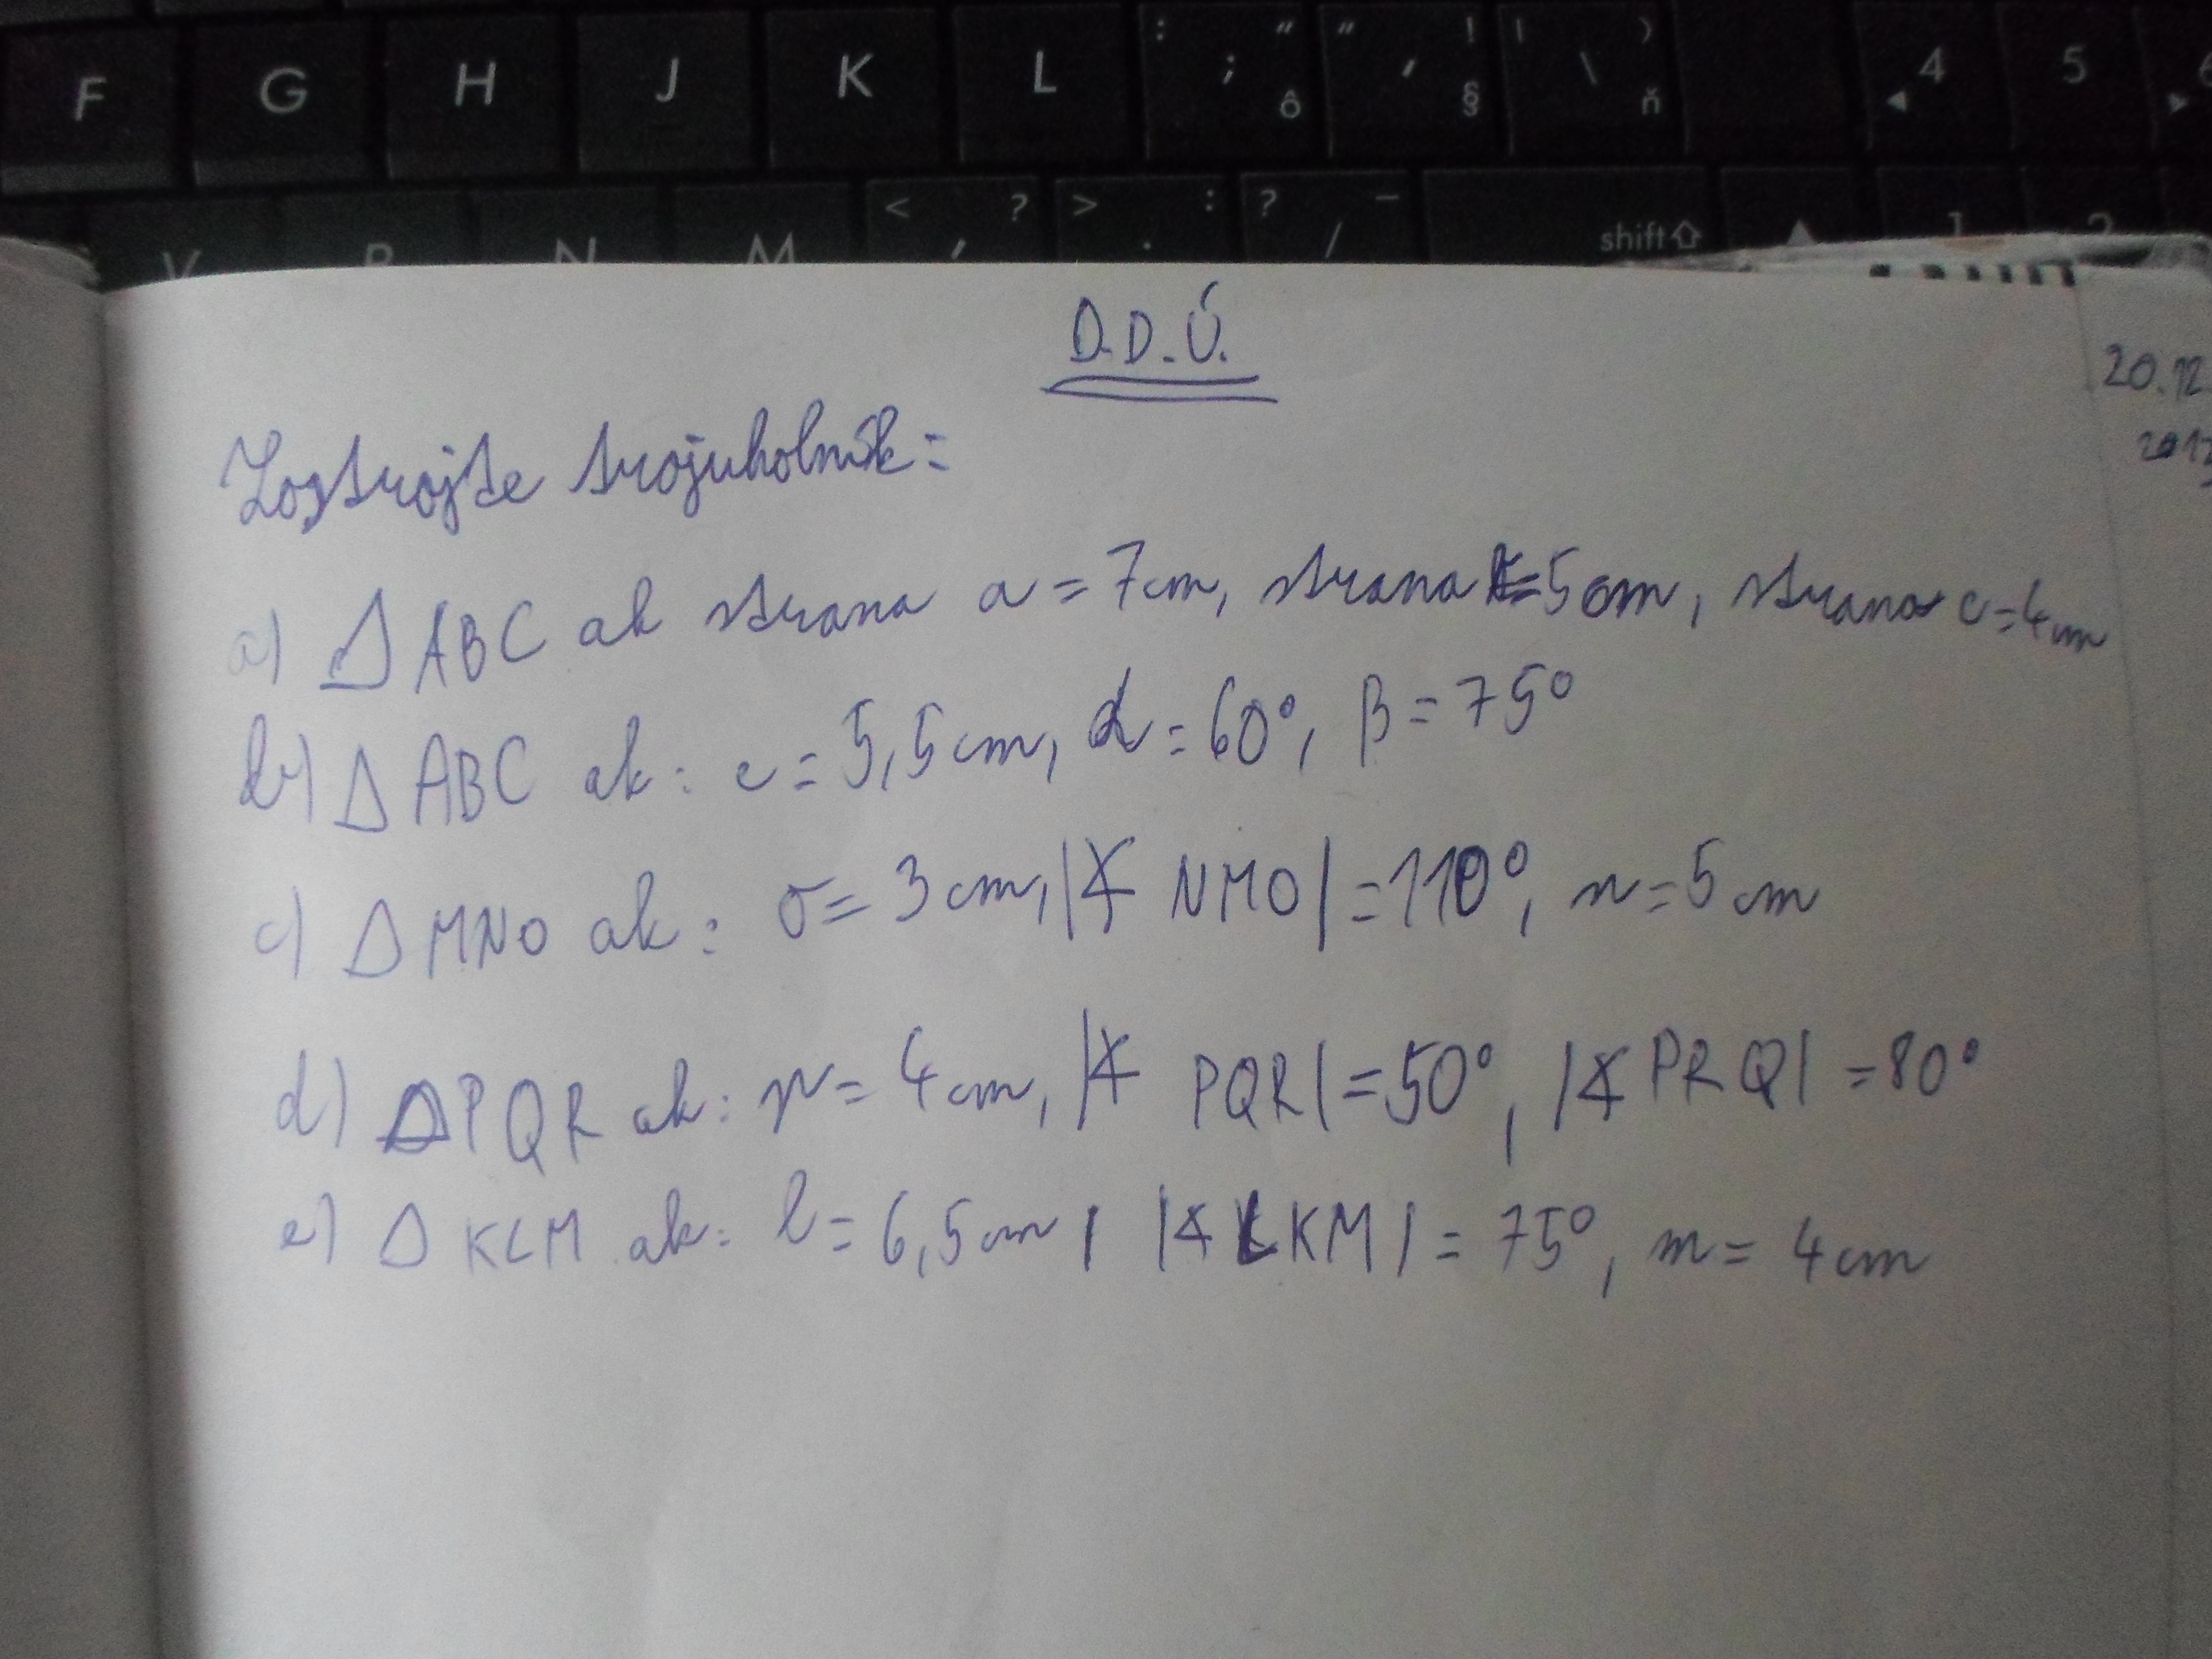 F G H J K L : ; " ô " ' ! § | \ ) ň 4 5
V B N M < , ? > . : ? / - shift 1 2
D.D.Ú.
20.12
Zostrojte trojuholník:
a) △ ABC ak strana a = 7cm, strana b=5cm, strana c=4cm
b) △ ABC ak: c = 5,5cm, α = 60°, β = 75°
c) △ MNO ak: o = 3cm, |∢ NMO| = 110°, n = 5cm
d) △ PQR ak: p = 4cm, |∢ PQR| = 50°, |∢ PRQ| = 80°
e) △ KLM ak: l = 6,5cm, |∢ LKM| = 75°, m = 4cm